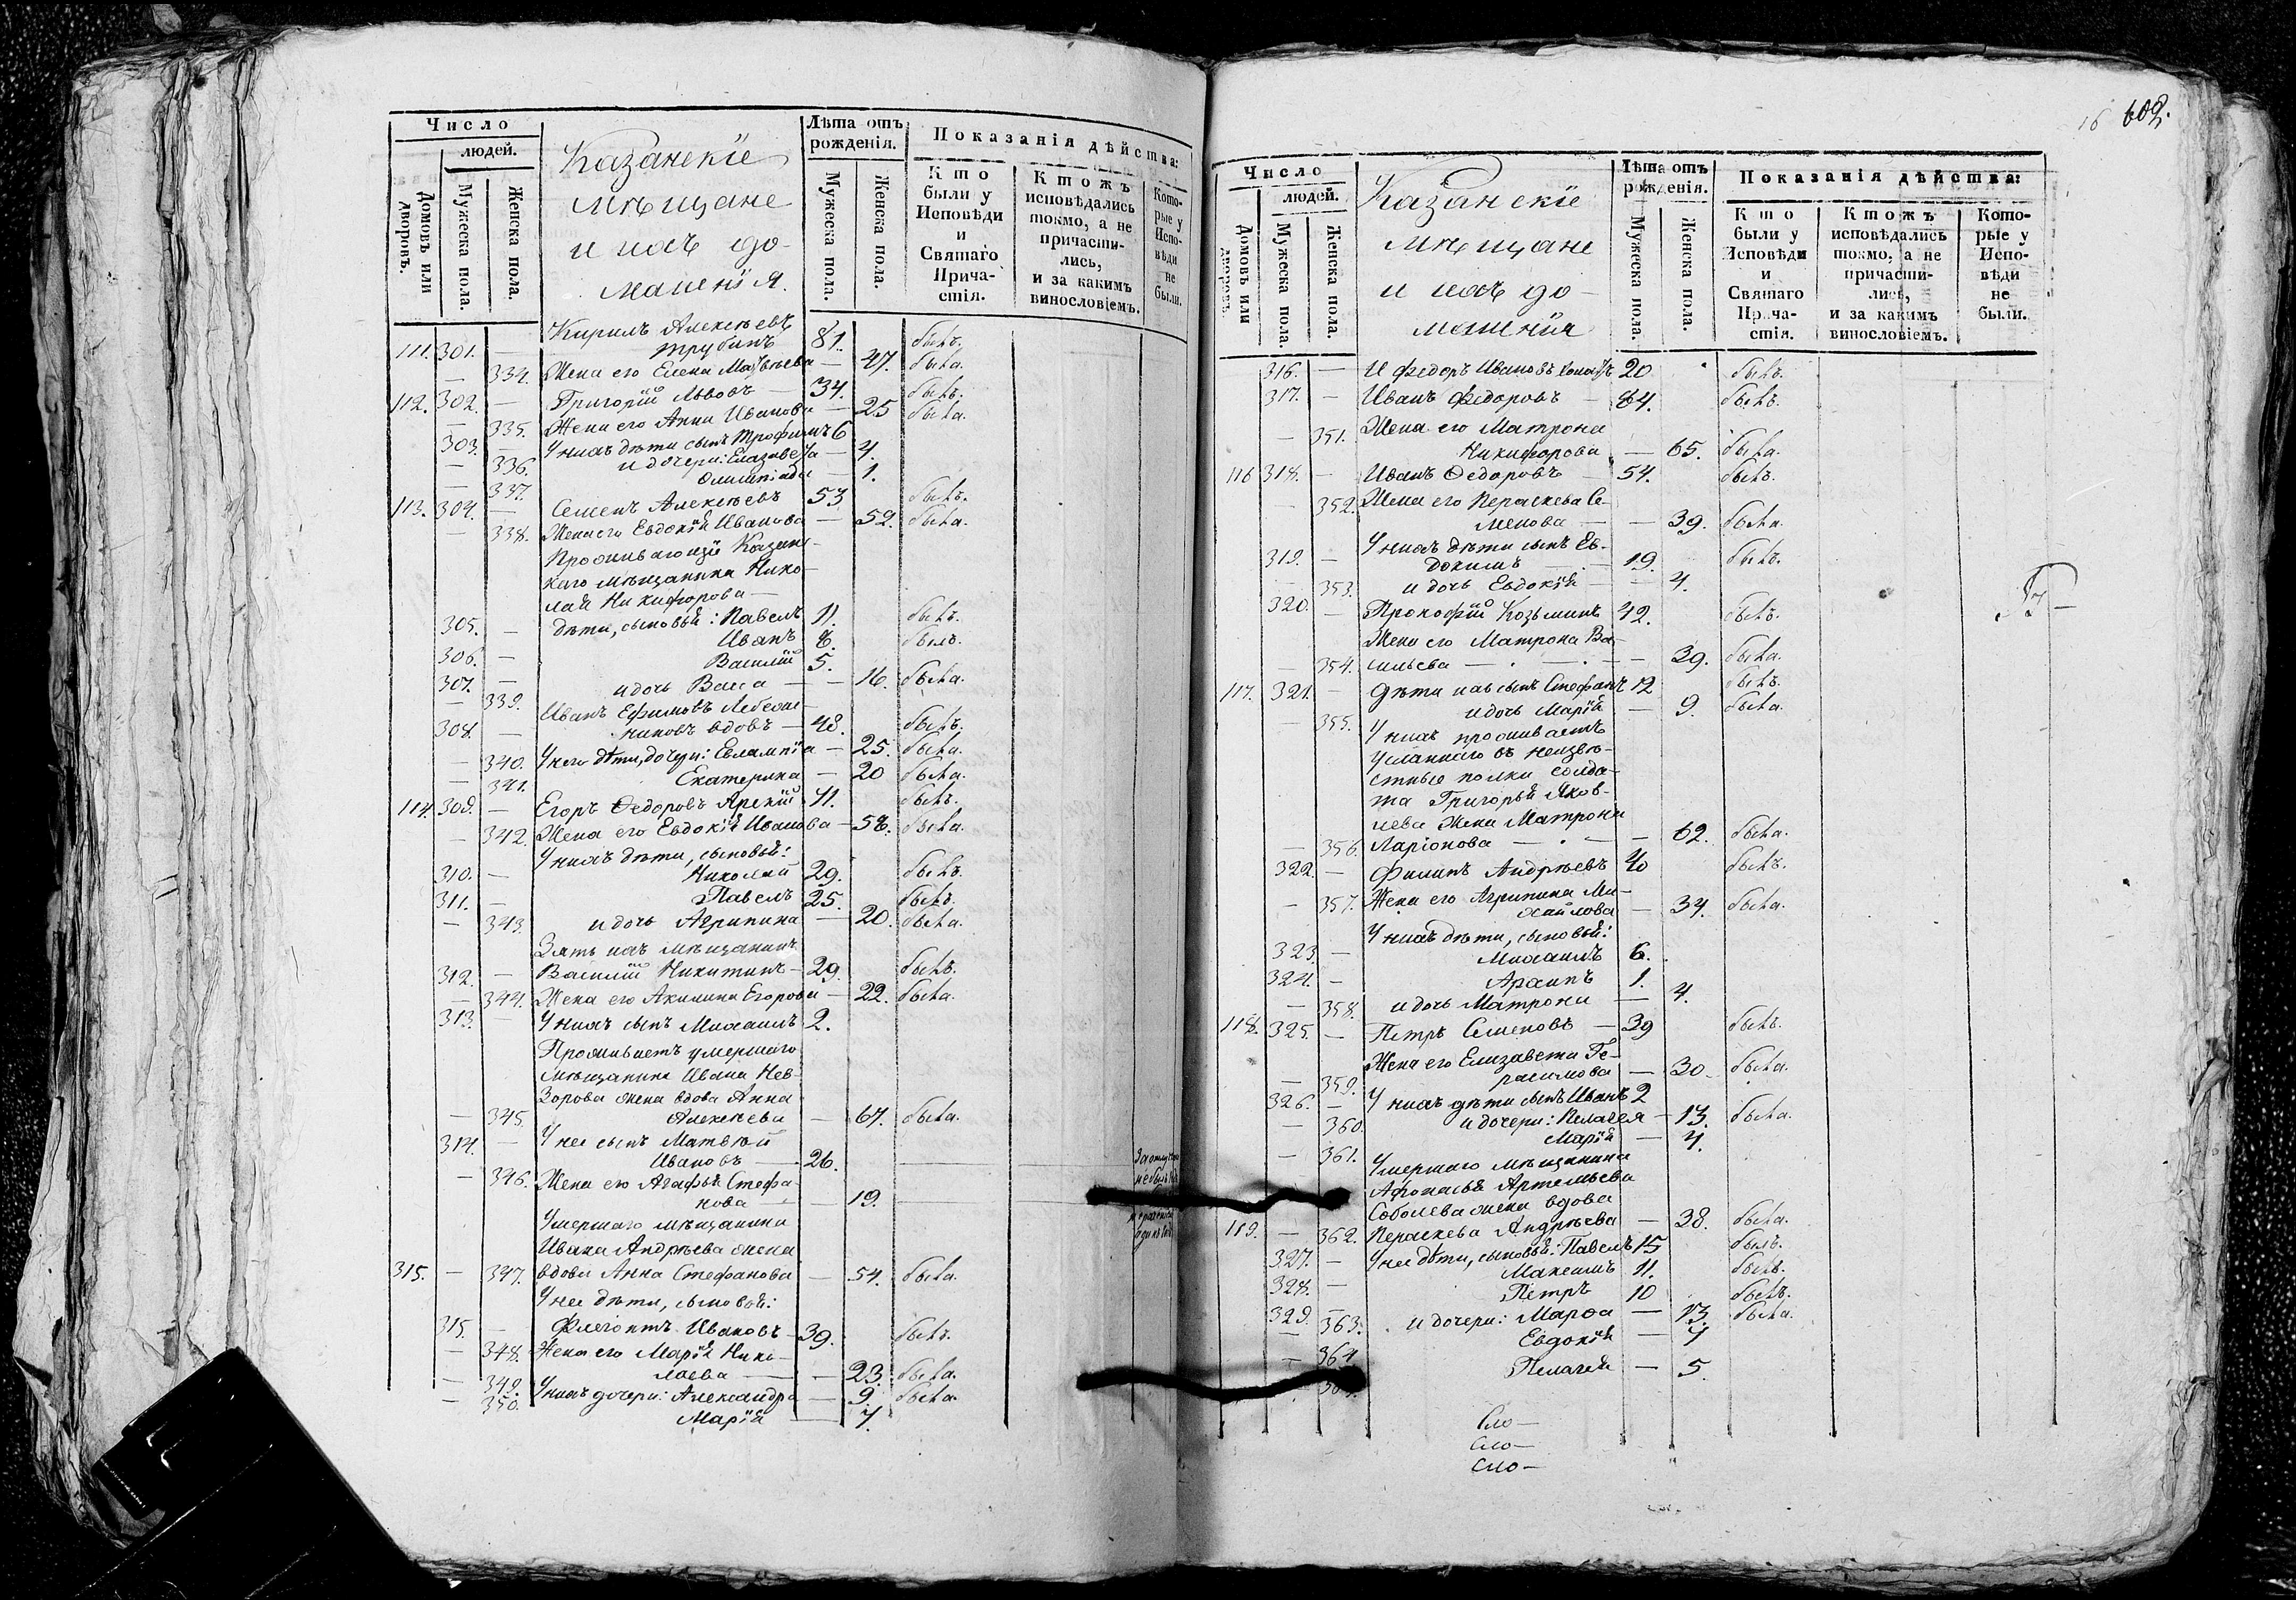 Число
людей.
Домовъ или дворовъ.
Мужеска пола.
Женска пола.
Казанскіе
мѣщане
и ихъ до-
машнія.
Лѣта отъ
рожденія.
Мужеска пола.
Женска пола.
Показанія дѣйства:
Кто были у Исповѣди и Святаго Прича-стія.
Ктожъ исповѣдались токмо, а не причасти-лись, и за какимъ винословіемъ.
Кото-рые у Испо-вѣди не были.
111. 301. — Кирилъ Алексѣевъ
Трубинъ 81. былъ.
— 334. Жена его Елена Матвѣева — 47. была.
112. 302. — Григорій Львовъ — 34. былъ.
— 335. Жена его Анна Иванова — 25 была.
303. — У нихъ дѣти сынъ Трофимъ 6
— 336. и дочери: Елизавета — 4.
— 337. Олимпіада — 1.
113. 304. — Семенъ Алексѣевъ 53 былъ.
— 338. Жена его Евдокія Иванова — 52. была.
Проживающіе Казан-
скаго мѣщанина Нико-
лая Никифорова —
305. — дѣти, сыновья: Павелъ 11. былъ.
306. — Иванъ 8. былъ.
307. — Василій 5.
— 339. и дочь Васса — — 16. была.
Иванъ Ефимовъ
308. — вдовъ — 48. былъ.
— 340. У него дѣти, дочери: Евлампія — 25. была.
— 341. Екатерина — 20 была.
114. 309. — Егоръ Ѳедоровъ Арскій 71. былъ.
— 342. Жена его Евдокія Иванова — 58. была.
У нихъ дѣти, сыновья:
310. — Николай 29. былъ.
311. — Павелъ 25. былъ.
— 343. и дочь Агрипина — 20. была.
Зять ихъ мѣщанинъ
312. — Василій Никитинъ — 29. былъ.
— 344. Жена его Акилина Егорова — 22. была.
313. — У нихъ сынъ Михаилъ 2.
Проживаетъ умершаго
мѣщанина Ивана Нев-
зорова жена вдова Анна
— 345. Алексѣева — 67. была.
314. — У нее сынъ Матвѣй
Ивановъ — 26.
— 346. Жена его Агафья Стефа-
нова — — 19.
Умершаго мѣщанина
Ивана Андрѣева жена
315. — 347. вдова Анна Стефанова — 54. была.
У нее дѣти, сыновья:
315. — Флегонтъ Ивановъ — 39. былъ.
— 348. Жена его Марія Нико-
лаева — — 23. была.
— 349. У нихъ дочери: Александра — 9. была.
— 350. Марія — 7.
16 602.
Число
людей.
Домовъ или дворовъ.
Мужеска пола.
Женска пола.
Казанскіе
мѣщане
и ихъ до-
машнія
Лѣта отъ
рожденія.
Мужеска пола.
Женска пола.
Показанія дѣйства:
Кто были у Исповѣди и Святаго Прича-стія.
Ктожъ исповѣдались токмо, а не причасти-лись, и за какимъ винословіемъ.
Кото-рые у Испо-вѣди не были.
316. — И Федоръ Ивановъ 20 былъ.
317. — Иванъ Федоровъ — 64. былъ.
— 351. Жена его Матрона
Никифорова — 65. была.
116 318. — Иванъ Ѳедоровъ — 54. былъ.
— 352. Жена его Пераскева Се-
менова — — 39. была.
319. — У нихъ дѣти сынъ Ев-
докимъ — 19. былъ.
— 353. и дочь Евдокія — — 4.
320. — Прокофій Козьминъ 42. былъ.
Жена его Матрона Ва-
— 354. сильева — — 39. была.
117. 321. — Дѣти ихъ сынъ Стефанъ 12 былъ.
— 355. и дочь Марія — 9. была.
У нихъ проживаетъ
Усланнаго въ неизвѣ-
стные полки солда-
та Григорья Яков-
лева жена Матрона
— 356. Ларіонова — — 62. была.
322. — Филипъ Андрѣевъ 40 былъ.
— 357. Жена его Агрипина Ми-
хайлова — 34. была.
У нихъ дѣти, сыновья:
323. — Михаилъ 6.
324. — Архипъ 1.
— 358. и дочь Матрона — 4.
118. 325. — Петръ Семеновъ — 39 былъ.
Жена его Елизавета Ге-
— 359. расимова — 30. была.
326. — У нихъ дѣти сынъ Иванъ 2
— 360. и дочери: Пелагея — 13. была.
— 361. Марія — 4.
Умершаго мѣщанина
Афонасья Артемьева
Соболева жена вдова
119. — 362. Пераскева Андрѣева — 38. была.
327. — У нее дѣти, сыновья: Павелъ 15 былъ.
328. — Максимъ 11. былъ.
329. — Петръ 10 былъ.
— 363. и дочери: Марѳа — 13. была.
— 364 Евдокія — 7
Пелагея — 5.